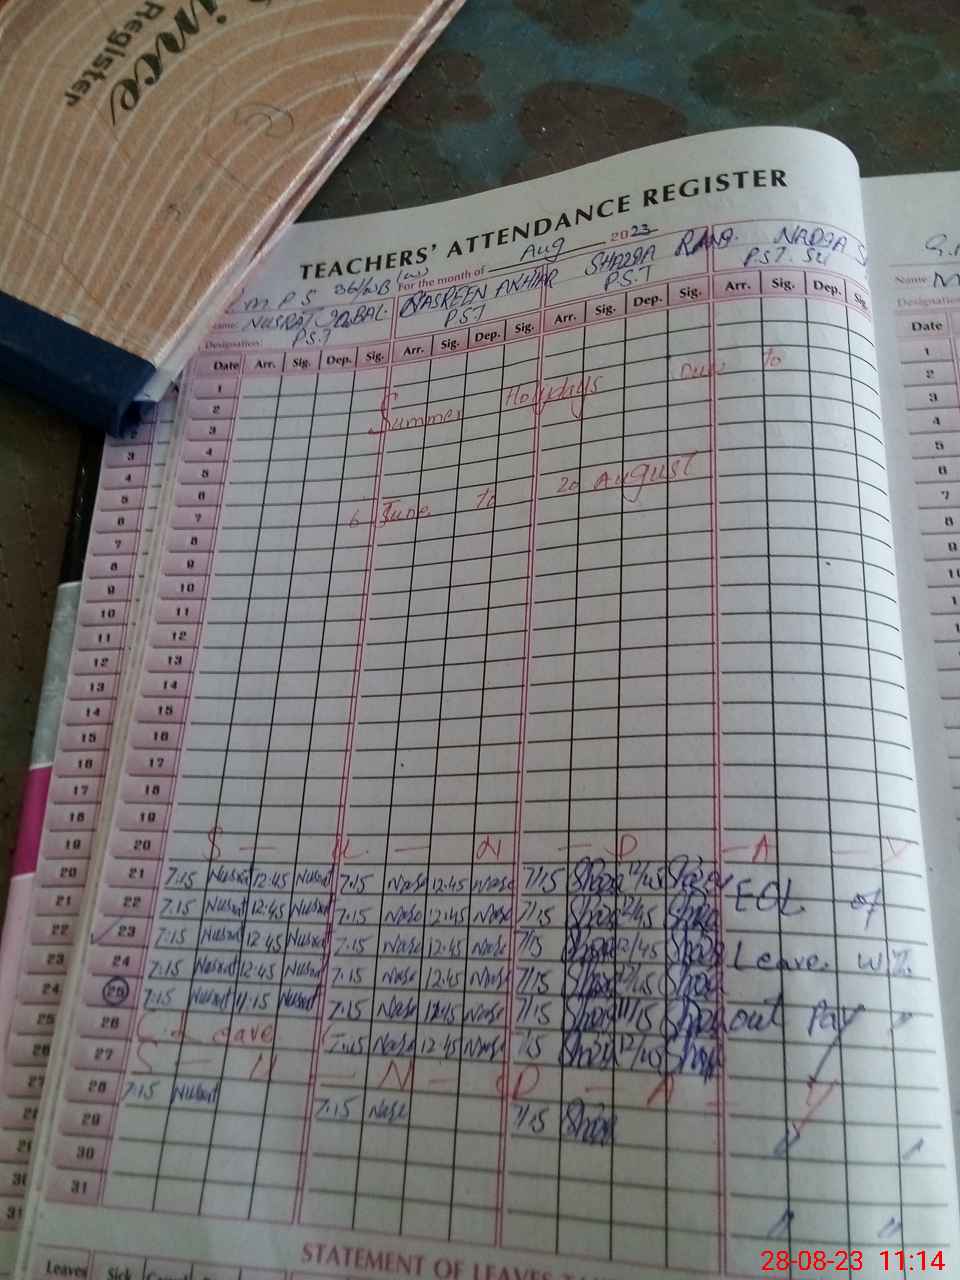 Register
TEACHERS' ATTENDANCE REGISTER
For the month of Aug 2023
M.P.S 36/WB (W)
Name: NUSRAT IQBAL NASREEN AKHTAR SHAZIA RANA NADIA
Designation: P.S.T PST P.S.T P.S.T. SU
Date Arr. Sig. Dep. Sig. Arr. Sig. Dep. Sig. Arr. Sig. Dep. Sig. Arr. Sig. Dep. Sig.
1
2 Summer Holydays due to
3
4
5
6
7 6 June to 20 August
8
9
10
11
12
13
14
15
16
17
18
19
20 S - U - N - D - A Y
21 7:15 Nusrat 12:45 Nusrat 7:15 Nase 12:45 Nase 7/15 Shaza 12/45 Shaza EOL of
22 7:15 Nusrat 12:45 Nusrat 7:15 Nase 12:45 Nase 7/15 Shaza 12/45 Shaza
23 7:15 Nusrat 12:45 Nusrat 7:15 Nase 12:45 Nase 7/15 Shaza 12/45 Shaza Leave with
24 7:15 Nusrat 12:45 Nusrat 7:15 Nase 12:45 Nase 7/15 Shaza 12/45 Shaza
25 7:15 Nusrat 11:15 Nusrat 7:15 Nase 11:45 Nase 7/15 Shaza 11/15 Shaza out Pay
26 C. Leave 7:15 Nase 12:45 Nase 7/15 Shaza 12/45 Shaza
27 S - U - N - D - A - Y
28 7:15 Nusrat 7:15 Nase 7/15 Shaza
29
30
31
STATEMENT OF LEAVES
Leaves Sick Casual
Name
Designation
Date
1
2
3
4
5
6
7
8
9
10
11
28-08-23 11:14